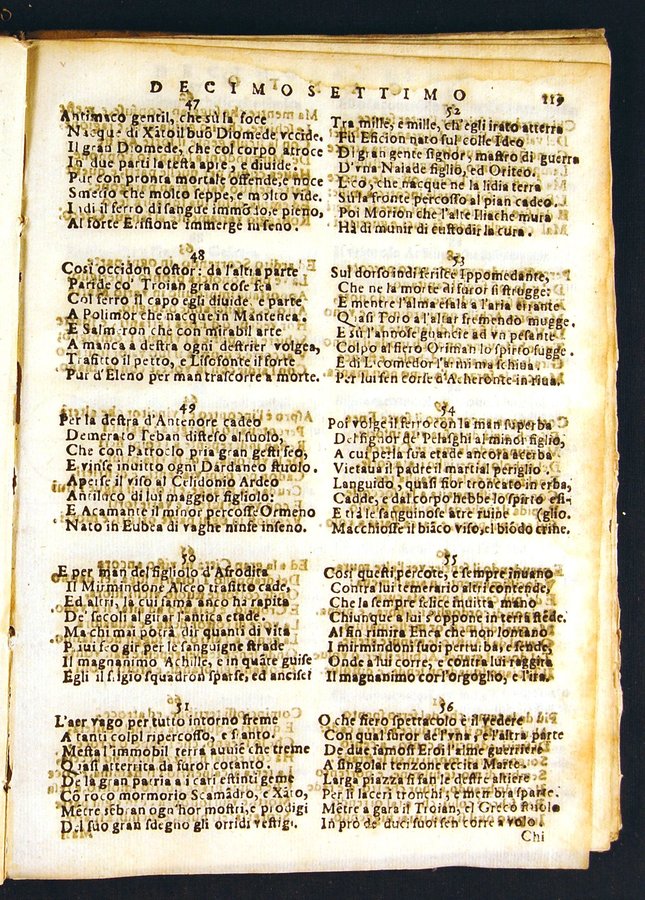 DECIMOSETTIMO
119
47
Antimaco gentil, che sù la foce
Nacque di Xāto il buō Diomede vccide.
Il gran Diomede, che col corpo atroce
In due parti la testa apre, e diuide.
Pur con pronta mortale offende, e noce
Smecio che molto seppe, e molto vide.
Indi il ferro di sangue immōdo, e pieno,
Al forte Erifione immerge in seno.
48
Così occidon costor: da l'altra parte
Paride co' Troian gran cose fea
Col ferro il capo egli diuide e parte
A Polimor che nacque in Mantenea.
E Salmeron che con mirabil arte
A manca a destra ogni destrier volgea,
Trafitto il petto, e Lisefonte il forte
Pur d'Eleno per man trascorre a morte.
49
Per la destra d'Antenore cadeo
Demerato Teban disteso al suolo,
Che con Patroclo pria gran gesti feo,
E vinse inuitto ogni Dardaneo stuolo.
Aperse il viso al Celidonio Ardeo
Antiloco di lui maggior figliolo:
E Acamante il minor percosse Ormeno
Nato in Eubea di vaghe ninfe in seno.
50
E per man del figliolo d'Afrodita
Il Mirmindone Alceo trafitto cade,
Ed altri, la cui fama anco ha rapita
De' secoli al girar l'antica etade.
Ma chi mai potrà dir quanti di vita
Priui feo gir per le sanguigne strade
Il magnanimo Achille, e in quāte guise
Egli il felgio squadron sparse, ed ancise?
51
L'aer vago per tutto intorno freme
A tanti colpi ripercosso, e franto.
Mesta l'immobil terra auuiē che treme
Quasi atterrita da furor cotanto.
De la gran patria a i cari estinti geme
Cō roco mormorio Scamādro, e Xāto,
Mētre sēbran ogn'hor mostri, e prodigi
Del suo gran sdegno gli orridi vestigi.
52
Tra mille, e mille, ch'egli irato atterra
Fù Eficion nato sul colle Ideo
Di gran gente signor, mastro di guerra
D'vna Naiade figlio, ed Oriteo.
Lco, che nacque ne la lidia terra
Su la fronte percosso al pian cadeo.
Poi Morion che l'alte Iliache mura
Hà di muniti di custodir la cura.
53
Sul dorso indi ferisce Ippomedante,
Che ne la morte di furor si strugge:
E mentre l'alma esala a l'aria errante
Quasi Toro a l'altar fremendo mugge.
E sù l'annose guancie ad vn pesante
Colpo al fiero Oriman lo spirto fugge.
E di Licomedor l'armi ma schiua
Per lui sen corse d'Acheronte in riua.
54
Poi volge il ferro con la man superba
Del signor de' Pelasghi al minor figlio,
A cui per la sua etade ancora acerba
Vietaua il padre il martial periglio.
Languido, quasi fior troncato in erba,
Cadde, e dal corpo hebbe lo spirto esi-
E tra le sanguinose atre ruine (glio.
Macchiosse il biāco viso, e l biōdo crine.
55
Così questi percote, e sempre inuano
Contra lui temerario altri contende,
Che la sempre felice inuitta mano
Chiunque a lui s'oppone in terra stēde.
Al fin rimira Enea che non lontano
I mirmindoni suoi perturba, e fende,
Onde a lui corre, e contra lui raggira
Il magnanimo cor l'orgoglio, e l'ira.
56
O che fiero spettacolo è il vedere
Con qual furor de l'vna, e l'altra parte
De due famosi Eroi l'alme guerriere
A singolar tenzone eccita Marte.
Larga piazza si fan le destre altiere
Per li laceri tronchi, e membra sparte.
Mētre a gara il Troian, e l Greco stuolo
In prò de' duci suoi sen corre a volo
Chi